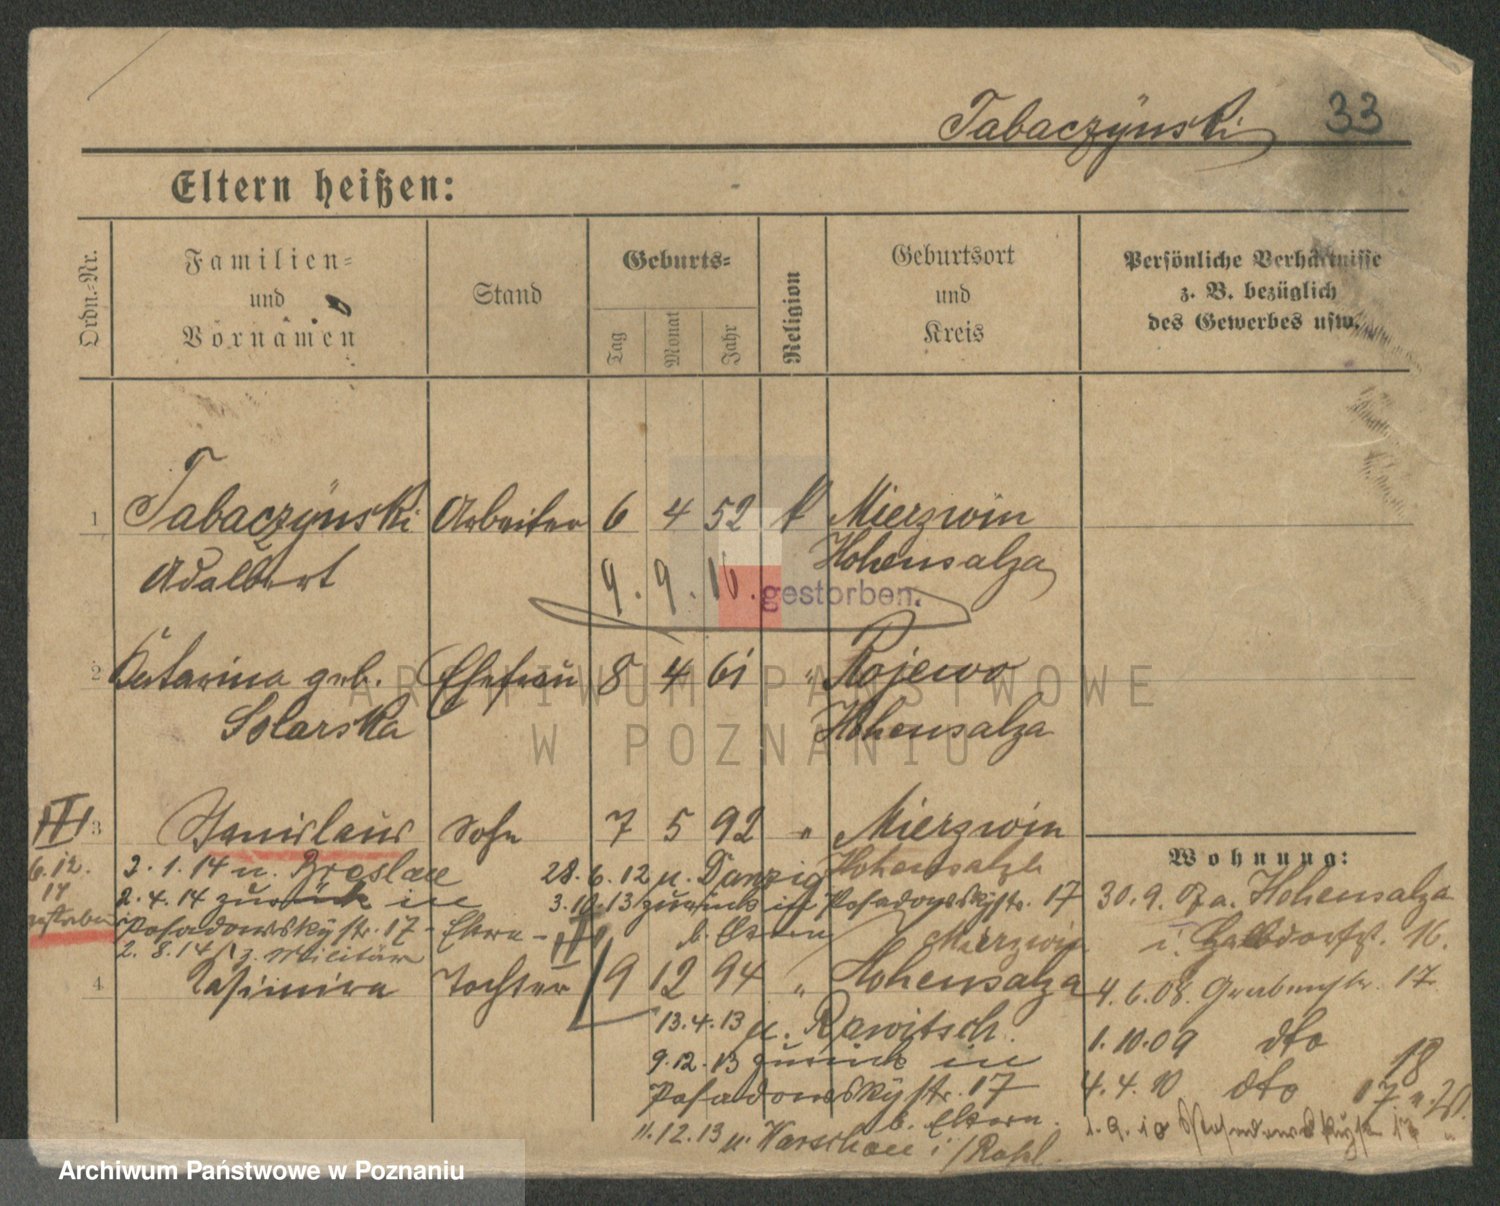 Tabaczÿnski 33
Eltern heißen:
Ordn.-Nr.
Familien-
und
Vornamen
Stand
Geburts-
Tag
Monat
Jahr
Religion
Geburtsort
und
Kreis
Persönliche Verhältnisse
z. B. bezüglich
des Gewerbes usw.
1 Tabaczÿnski Arbeiter 6 4 52 k Mierzwin
Adalbert Hohensalza
9. 9. 16. gestorben.
2 Katarina geb. Ehefrau 8 4 61 " Rojewo
Solarska Hohensalza
III 3 Stanislaus Sohn 7 5 92 " Mierzwin
Hohensalza
6.12.
17
gestorben
3.1.14 n. Breslau
2.4.14 zurück in
Posadowskÿstr. 17 - Eltern -
2.8.14 z. Militär
28.6.12 n. Danzig
3.10.13 zurück in Posadowskÿstr. 17
b. Eltern
III
4 Kasimira Tochter 19 12 94 " Mierzwin
Hohensalza
13.4.13 n. Rawitsch.
9.12.13 zurück in
Posadowskÿstr. 17
b. Eltern.
11.12.13 n. Warschau i/Rußl.
Wohnung:
30.9.07 a. Hohensalza
i. 16.
4.6.08. 17
1.10.09 dto 18
4.4.10 dto 17 u. 20.
1.9.10 Posadowskÿstr 17
ARCHIWUM PAŃSTWOWE
W POZNANIU
Archiwum Państwowe w Poznaniu